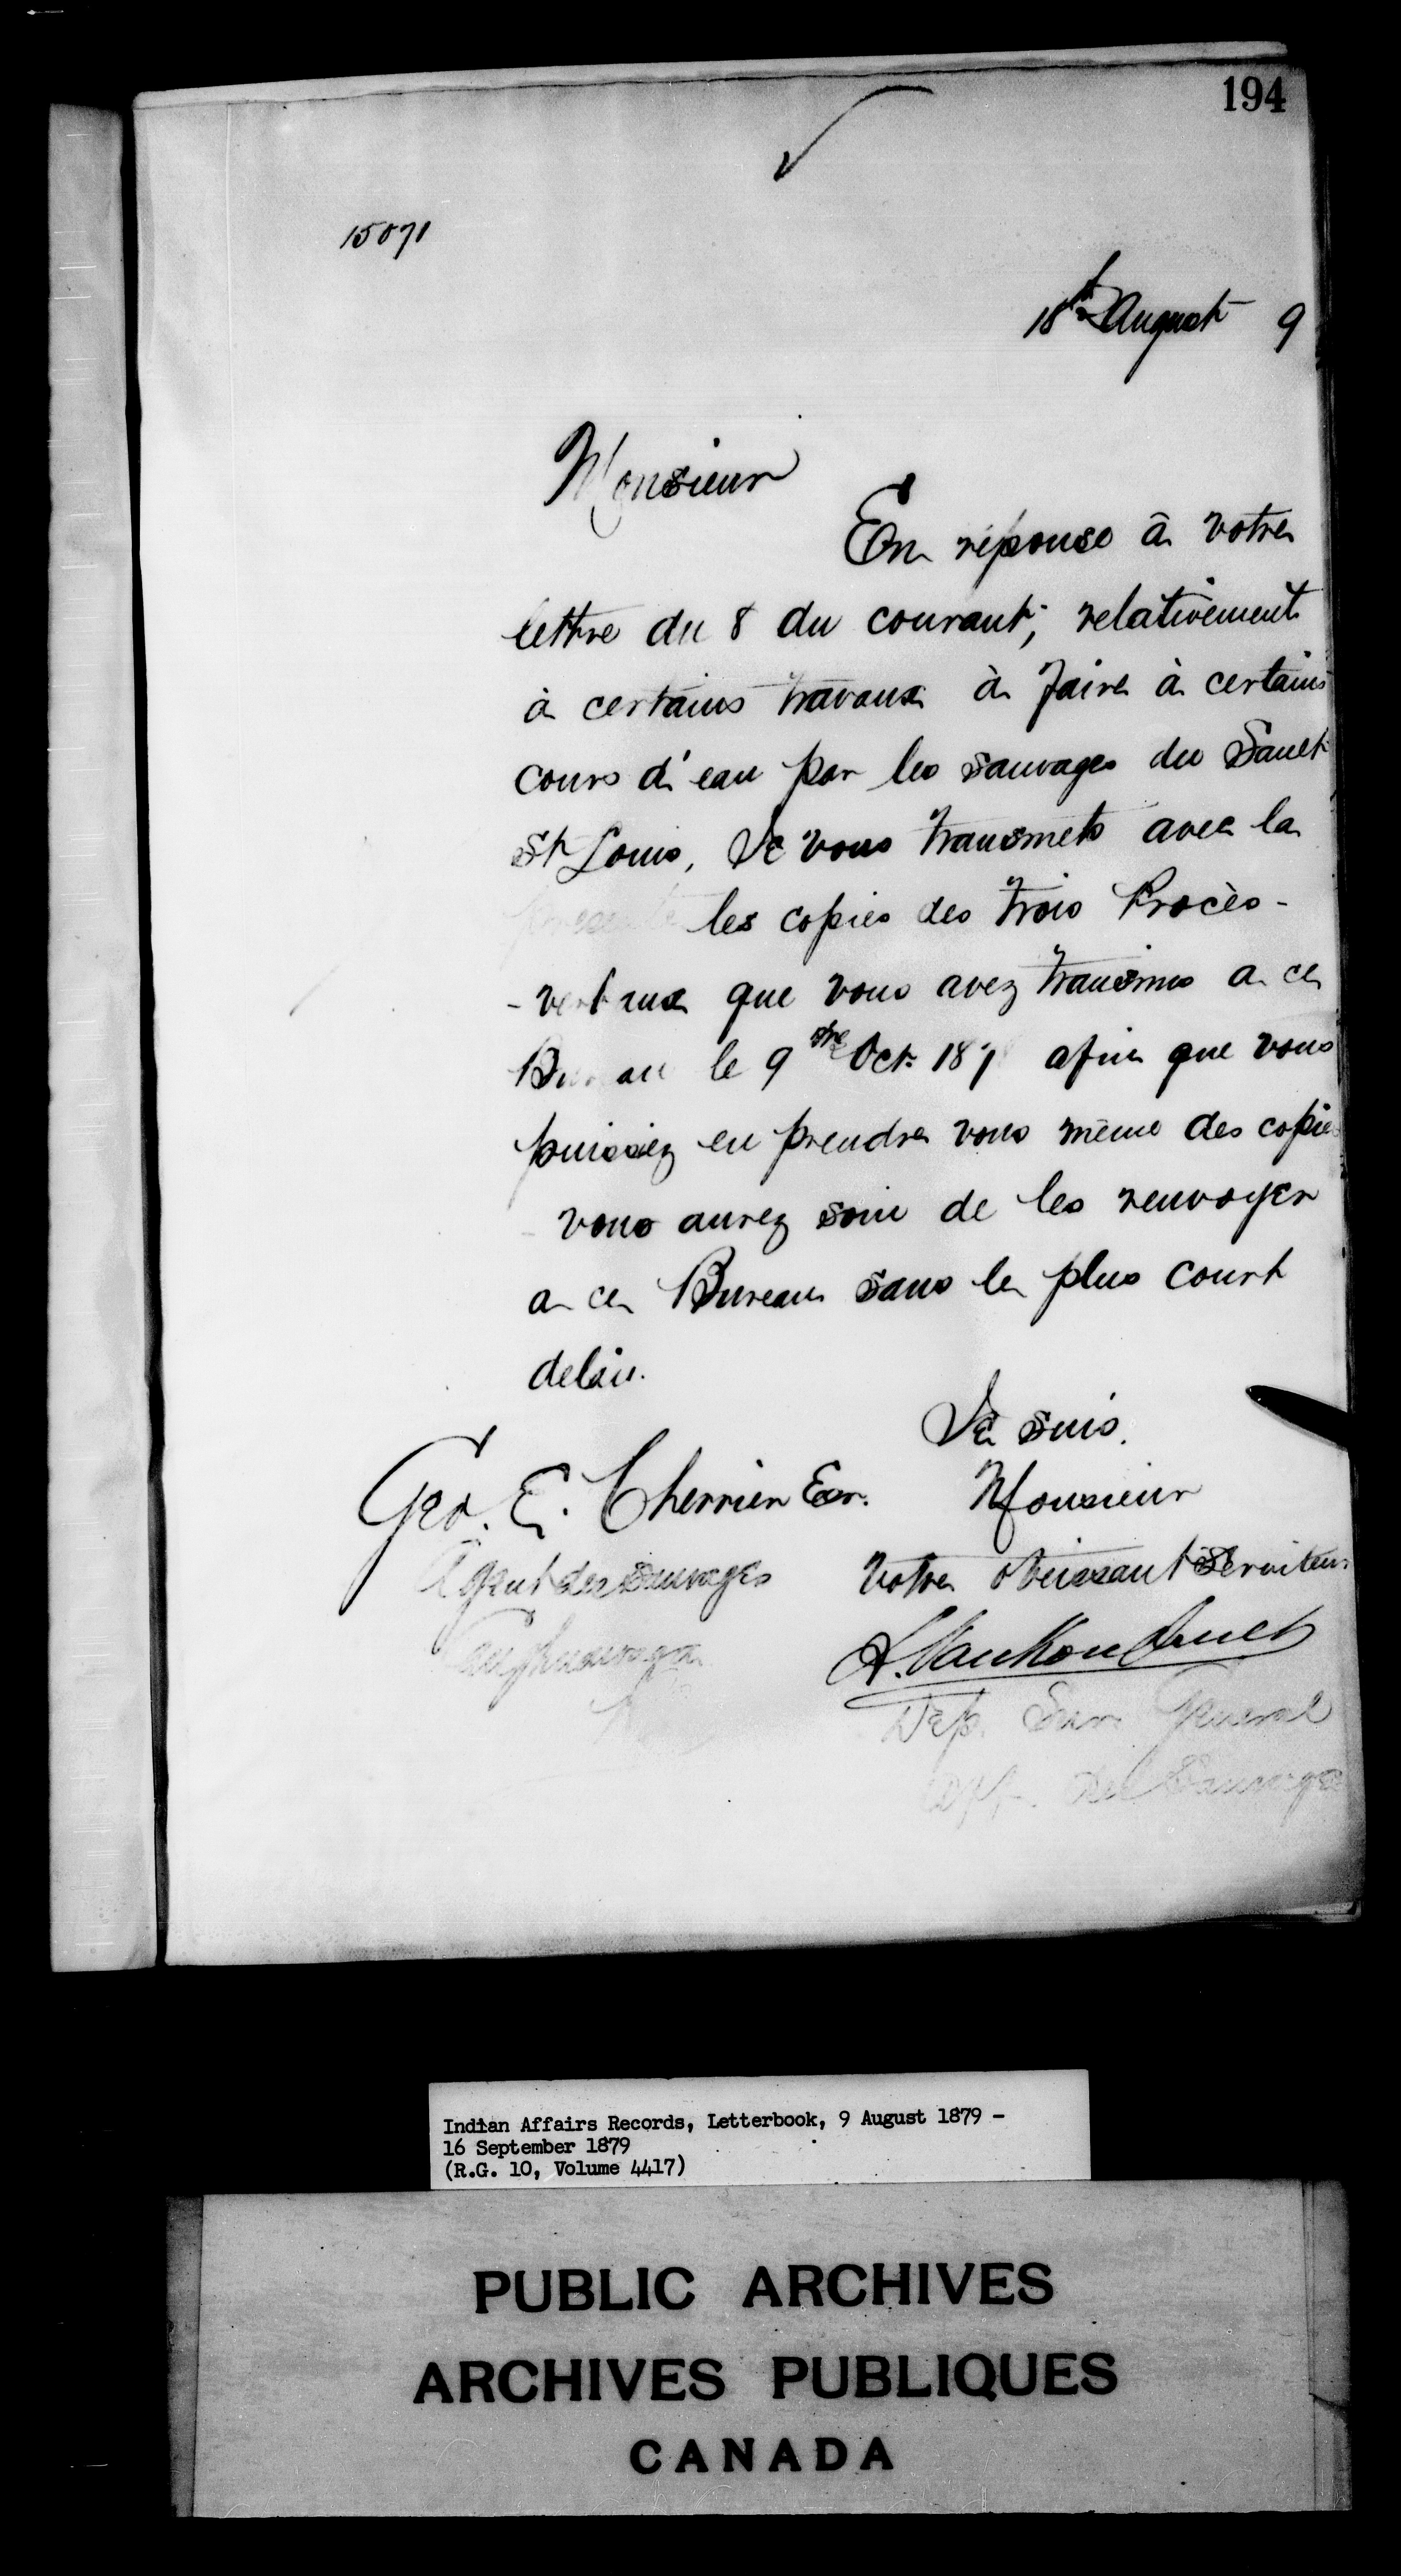 194
15071
18th August 9
Monsieur
En réponse à votre
lettre du 8 du courant, relativement
à certains travaux à faire à certains
cours d'eau par les sauvages du Sault
St Louis, Je vous transmets avec la
présente les copies des trois Procès-
-verbaux que vous avez transmis a ce
Bureau le 9 Oct. 187 afin que vous
puissiez en prendre vous même des copies
vous aurez soin de les renvoyer
a ce Bureau sans le plus court
delai.
Je suis.
Monsieur
Votre obeissant serviteur
Geo. E. Cherrier Ecr.
Agent des Sauvages
Caughnawaga
L. VanKoughnet
Dep. Surn General
Aff. des Sauvages
Indian Affairs Records, Letterbook, 9 August 1879 -
16 September 1879
(R.G. 10, Volume 4417)
PUBLIC ARCHIVES
ARCHIVES PUBLIQUES
CANADA